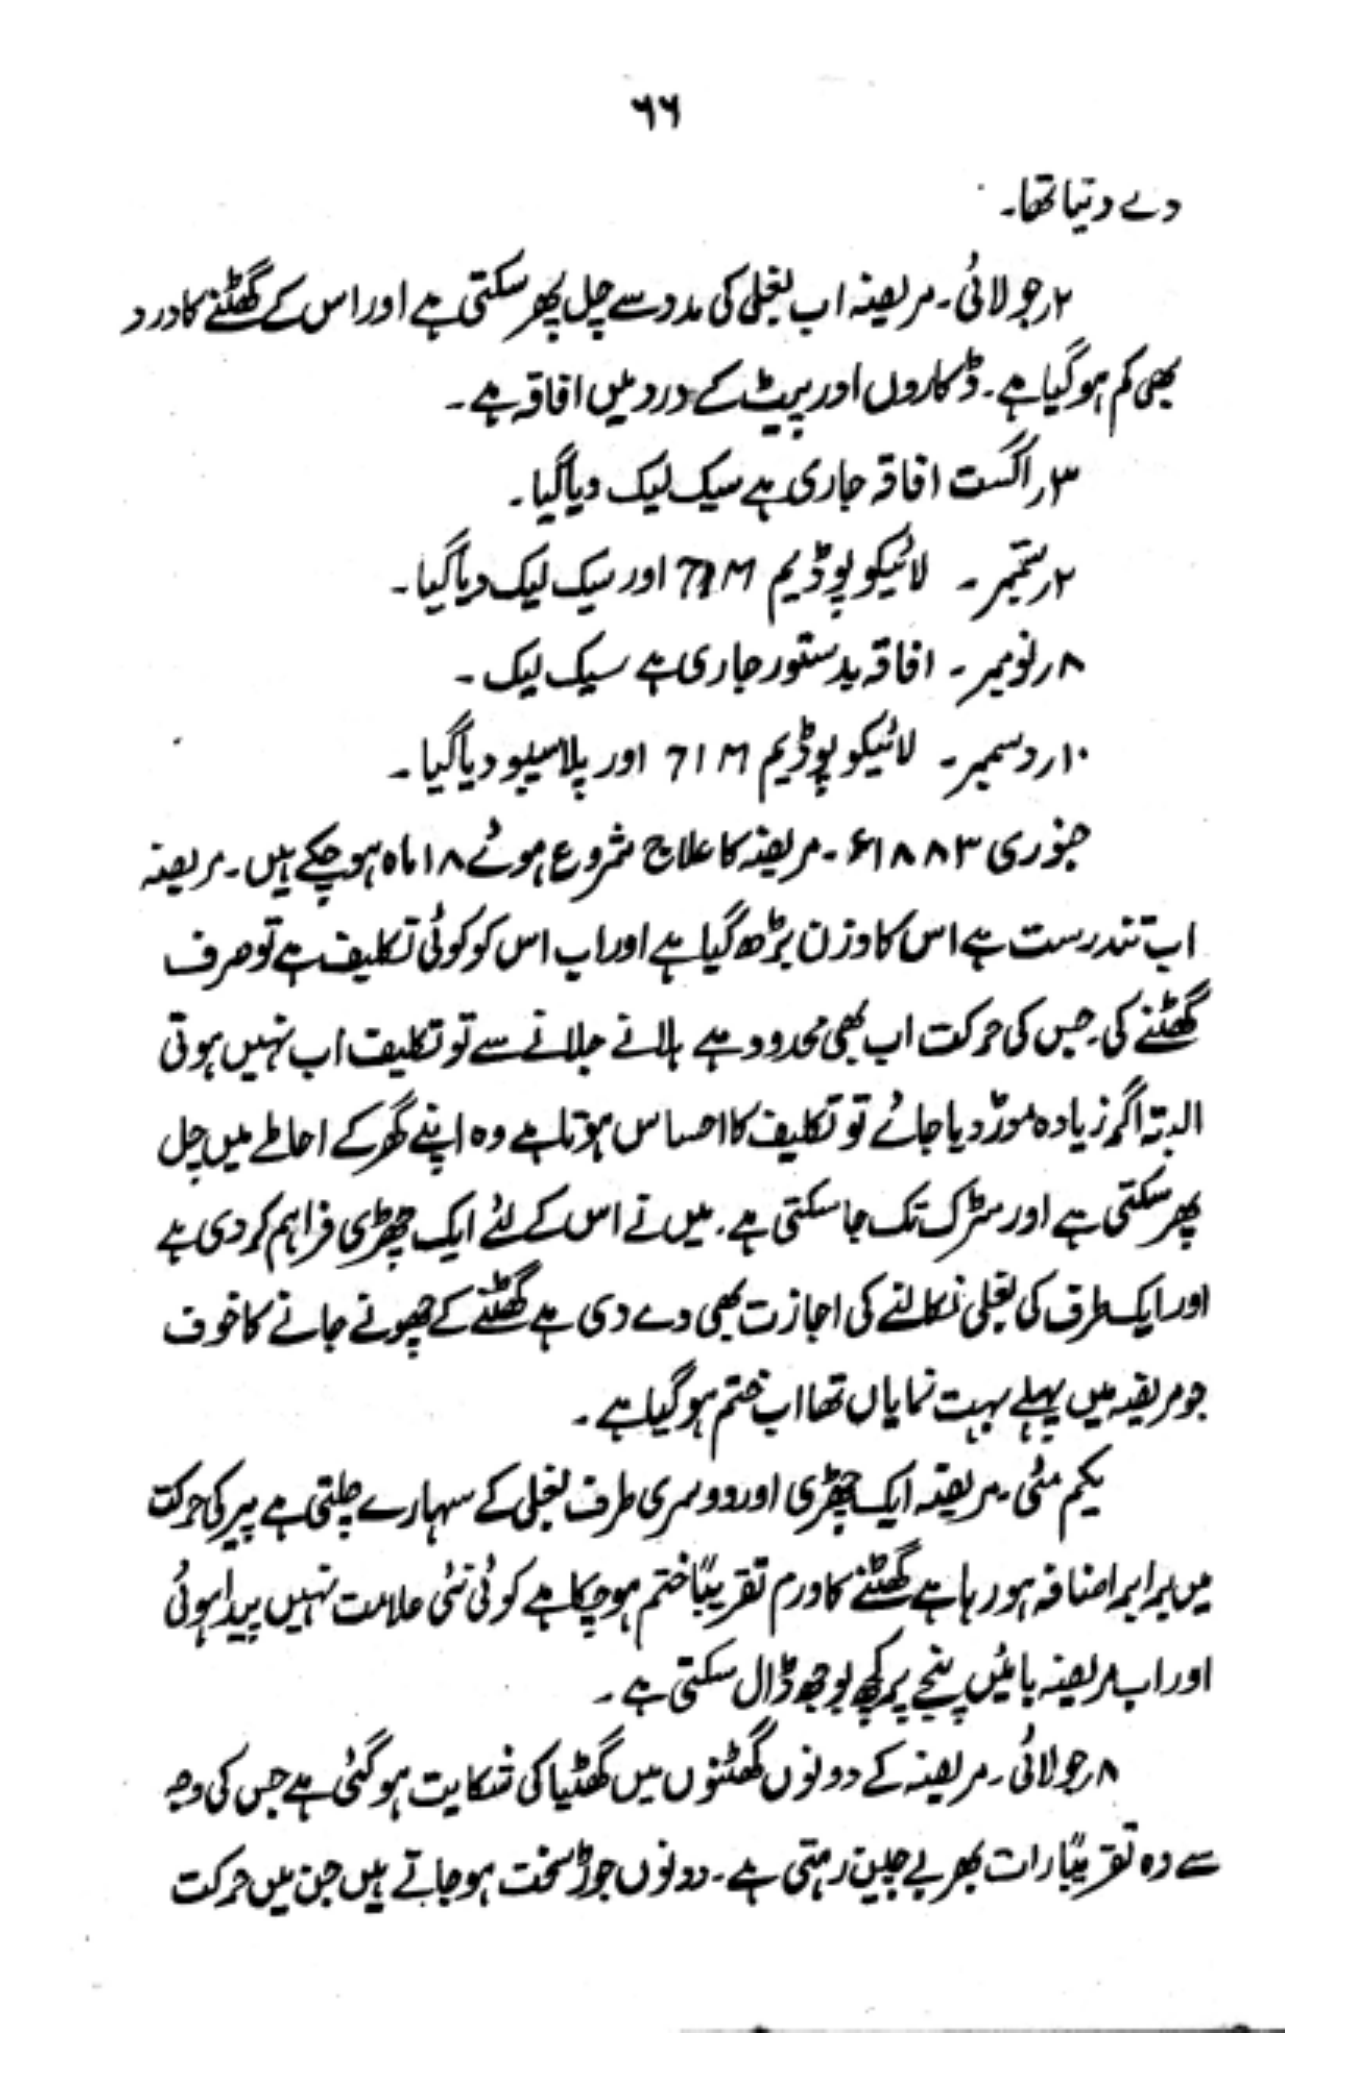 ۶۶
دے دیتا تھا۔
۲ر جولائی۔ مریضہ اب بغلی کی مدد سے چل پھر سکتی ہے اور اس کے گھٹنے کا درد
بھی کم ہو گیا ہے۔ ڈکاروں اور پیٹ کے درد میں افاقہ ہے۔
۳ر اگست افاقہ جاری ہے سیک لیک دیا گیا۔
۲ر ستمبر۔ لائیکو پوڈیم 71M اور سیک لیک دیا گیا۔
۸ر نومبر۔ افاقہ بدستور جاری ہے سیک لیک۔
۱۰ر دسمبر۔ لائیکو پوڈیم 71M اور پلاسیبو دیا گیا۔
جنوری ۱۸۸۳ء۔ مریضہ کا علاج شروع ہوئے ۱۸ ماہ ہو چکے ہیں۔ مریضہ
اب تندرست ہے اس کا وزن بڑھ گیا ہے اور اب اس کو کوئی تکلیف ہے تو صرف
گھٹنے کی۔ جس کی حرکت اب بھی محدود ہے ہلانے جلانے سے تو تکلیف اب نہیں ہوتی
البتہ اگر زیادہ موڑ دیا جائے تو تکلیف کا احساس ہوتا ہے وہ اپنے گھر کے احاطے میں چل
پھر سکتی ہے اور سڑک تک جا سکتی ہے۔ میں نے اس کے لئے ایک چھڑی فراہم کر دی ہے
اور ایک طرف کی بغلی نکالنے کی اجازت بھی دے دی ہے گھٹنے کے چھوئے جانے کا خوف
جو مریضہ میں پہلے بہت نمایاں تھا اب ختم ہو گیا ہے۔
یکم مئی۔ مریضہ ایک چھڑی اور دوسری طرف بغلی کے سہارے چلتی ہے پیر کی حرکت
میں برابر اضافہ ہو رہا ہے گھٹنے کا ورم تقریباً ختم ہو چکا ہے کوئی نئی علامت نہیں پیدا ہوئی
اور اب مریضہ بائیں پنجے پر کچھ بوجھ ڈال سکتی ہے۔
۸ر جولائی۔ مریضہ کے دونوں گھٹنوں میں گھٹیا کی شکایت ہو گئی ہے جس کی وجہ
سے وہ تقریباً رات بھر بے چین رہتی ہے۔ دونوں جوڑ سخت ہو جاتے ہیں جن میں حرکت